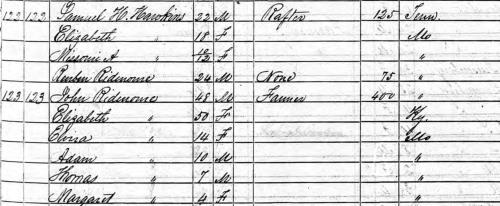 122 122 Samuel H. Hawkins 22 M Rafter 125 Tenn.
Elizabeth " 18 F Mo
Missouri A " 10/12 F "
Reuben Ridmome 24 M None 75 "
123 123 John Ridmome 48 M Farmer 400 "
Elizabeth " 50 F Ky.
Elvira " 14 F Mo
Adam " 10 M "
Thomas " 7 M "
Margaret " 4 F "